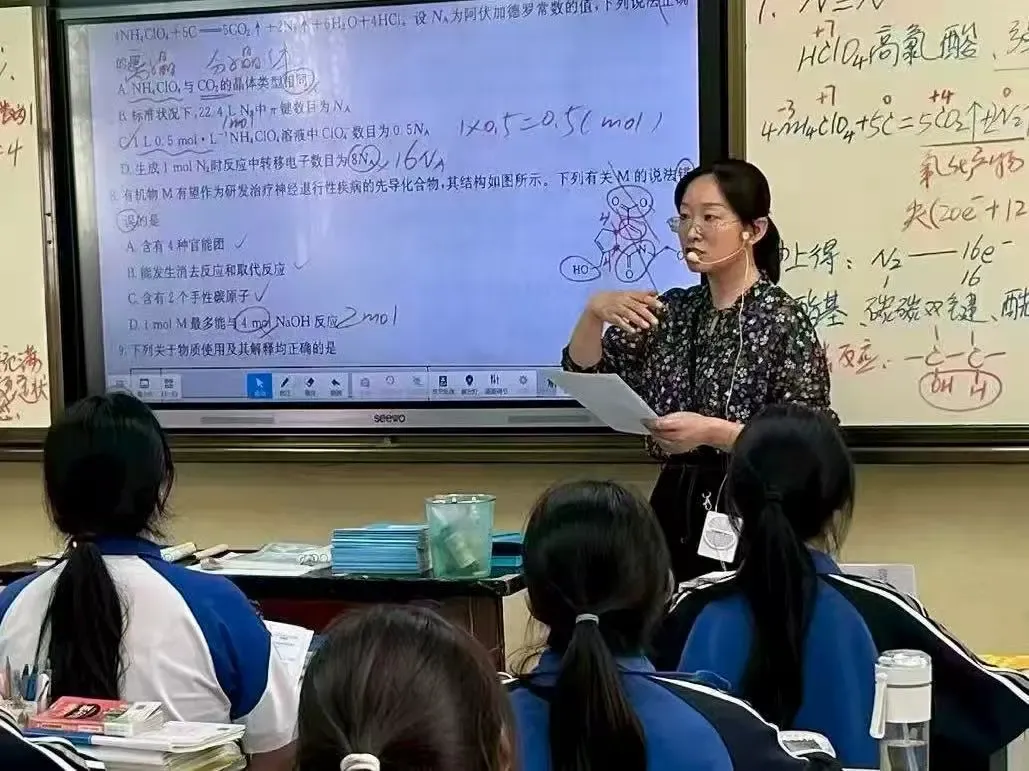 4NH₄ClO₄+5C══5CO₂↑+2N₂↑+6H₂O+4HCl。设 Nₐ为阿伏加德罗常数的值,下列说法正确
的是
A. NH₄ClO₄与CO₂的晶体类型相同
B. 标准状况下,22.4 L N₂中π键数目为Nₐ
C. 1 L 0.5 mol·L⁻¹NH₄ClO₄溶液中ClO₄⁻数目为0.5Nₐ
1×0.5=0.5(mol)
D. 生成1 mol N₂时反应中转移电子数目为8Nₐ
16Nₐ
8. 有机物M有望作为研发治疗神经退行性疾病的先导化合物,其结构如图所示。下列有关M的说法错
误的是
A. 含有4种官能团 ✓
B. 能发生消去反应和取代反应 ✓
C. 含有2个手性碳原子 ✓
D. 1 mol M最多能与4 mol NaOH反应
2mol
9. 下列关于物质使用及其解释均正确的是
HO
O
O
O
seewo
+7
HClO₄高氯酸、
-3 +7 0 +4 0
4NH₄ClO₄+5C=5CO₂↑+2N₂
氧化产物
失(20e⁻+12
得:N₂——16e⁻
1 16
碳碳双键、酰
反应:-C-C-
OH H